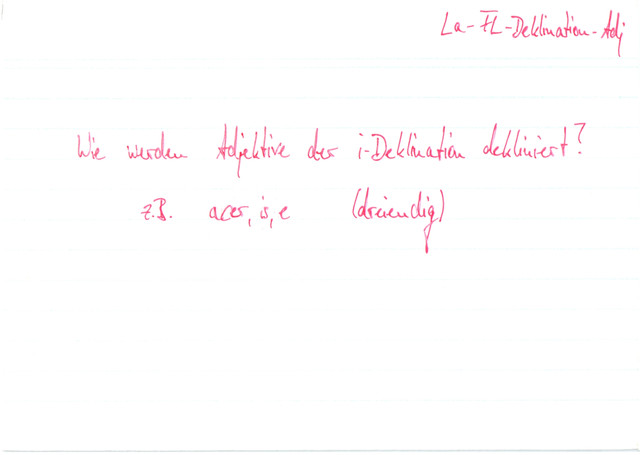 La-FL-Deklination-Adj
Wie werden Adjektive der i-Deklination dekliniert?
z.B. acer, is, e (dreiendig)